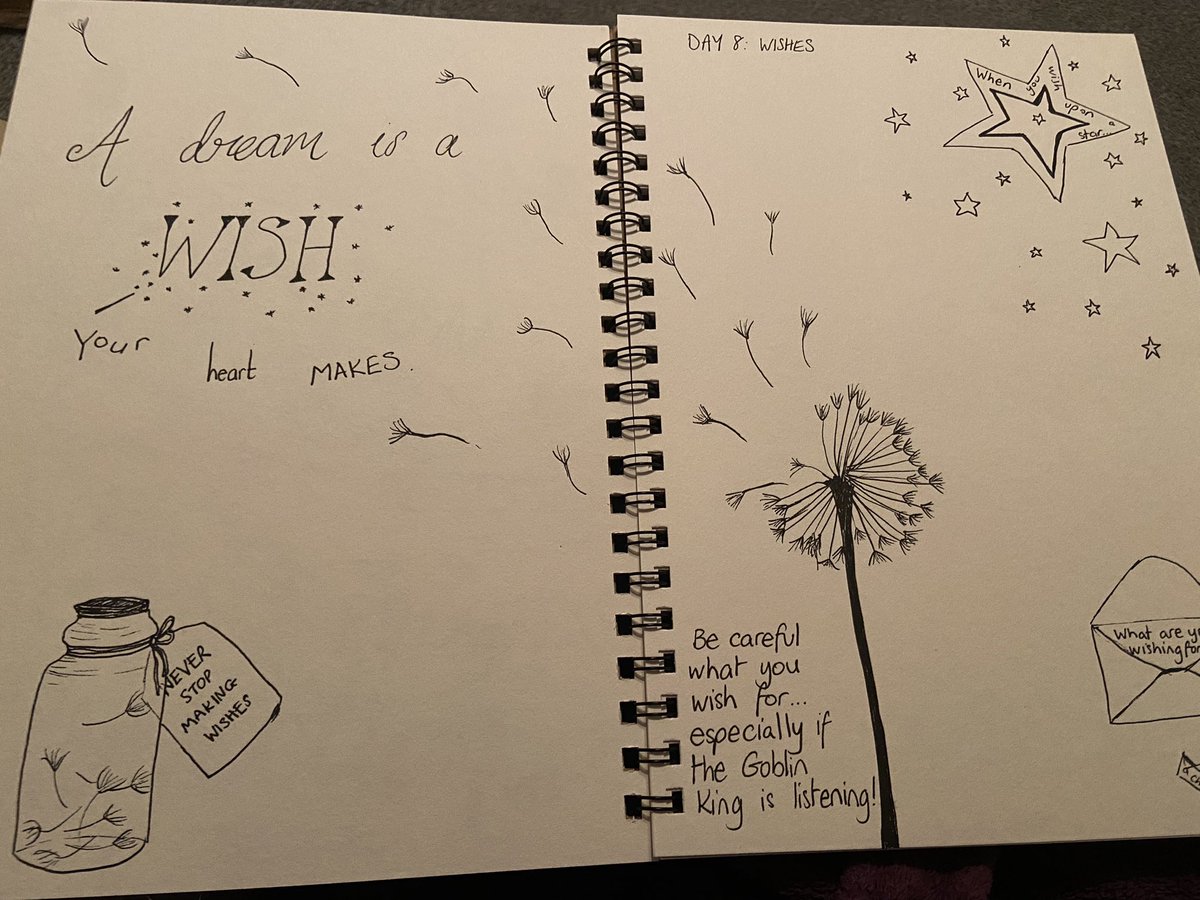 A dream is a
WISH
Your heart MAKES.
NEVER
STOP
MAKING
WISHES
DAY 8: WISHES
When you wish upon a star...
Be careful
what you
wish for...
especially if
the Goblin
King is listening!
What are
wishing for